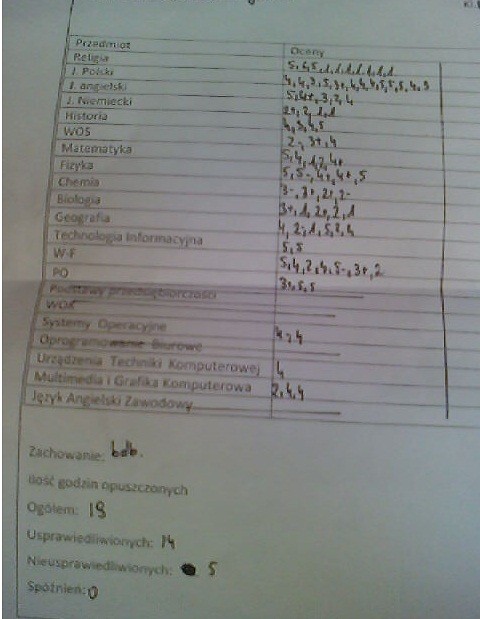 Kl.
Przedmiot Oceny
Religia 5,4,5,1,1,1,1,1,1,1
J. Polski 4,4,3,5,3+,4,4,4,5,5,5,4,3
J. angielski 5,4+,3,2,4
J. Niemiecki 2+,2,1,1
Historia 4,3,4,5
WOS 2-,3+,4
Matematyka 5,4,1,2,4+
Fizyka 5,5-,4+,4+,5
Chemia 3-,3+,2+,2-
Biologia 3+,1,2+,2,1
Geografia 4,2-,1,5,2,4
Technologia Informacyjna 5,5
W-F 5,4,2,4,5-,3+,2
PO 3+,5,5
Podstawy przedsiębiorczości
WOK
Systemy Operacyjne
Oprogramowanie Biurowe
Urządzenia Techniki Komputerowej 4
Multimedia i Grafika Komputerowa 2,4,4
Język Angielski Zawodowy
Zachowanie: bdb.
Ilość godzin opuszczonych
Ogółem: 19
Usprawiedliwionych: 14
Nieusprawiedliwionych: 5
Spóźnień: 0